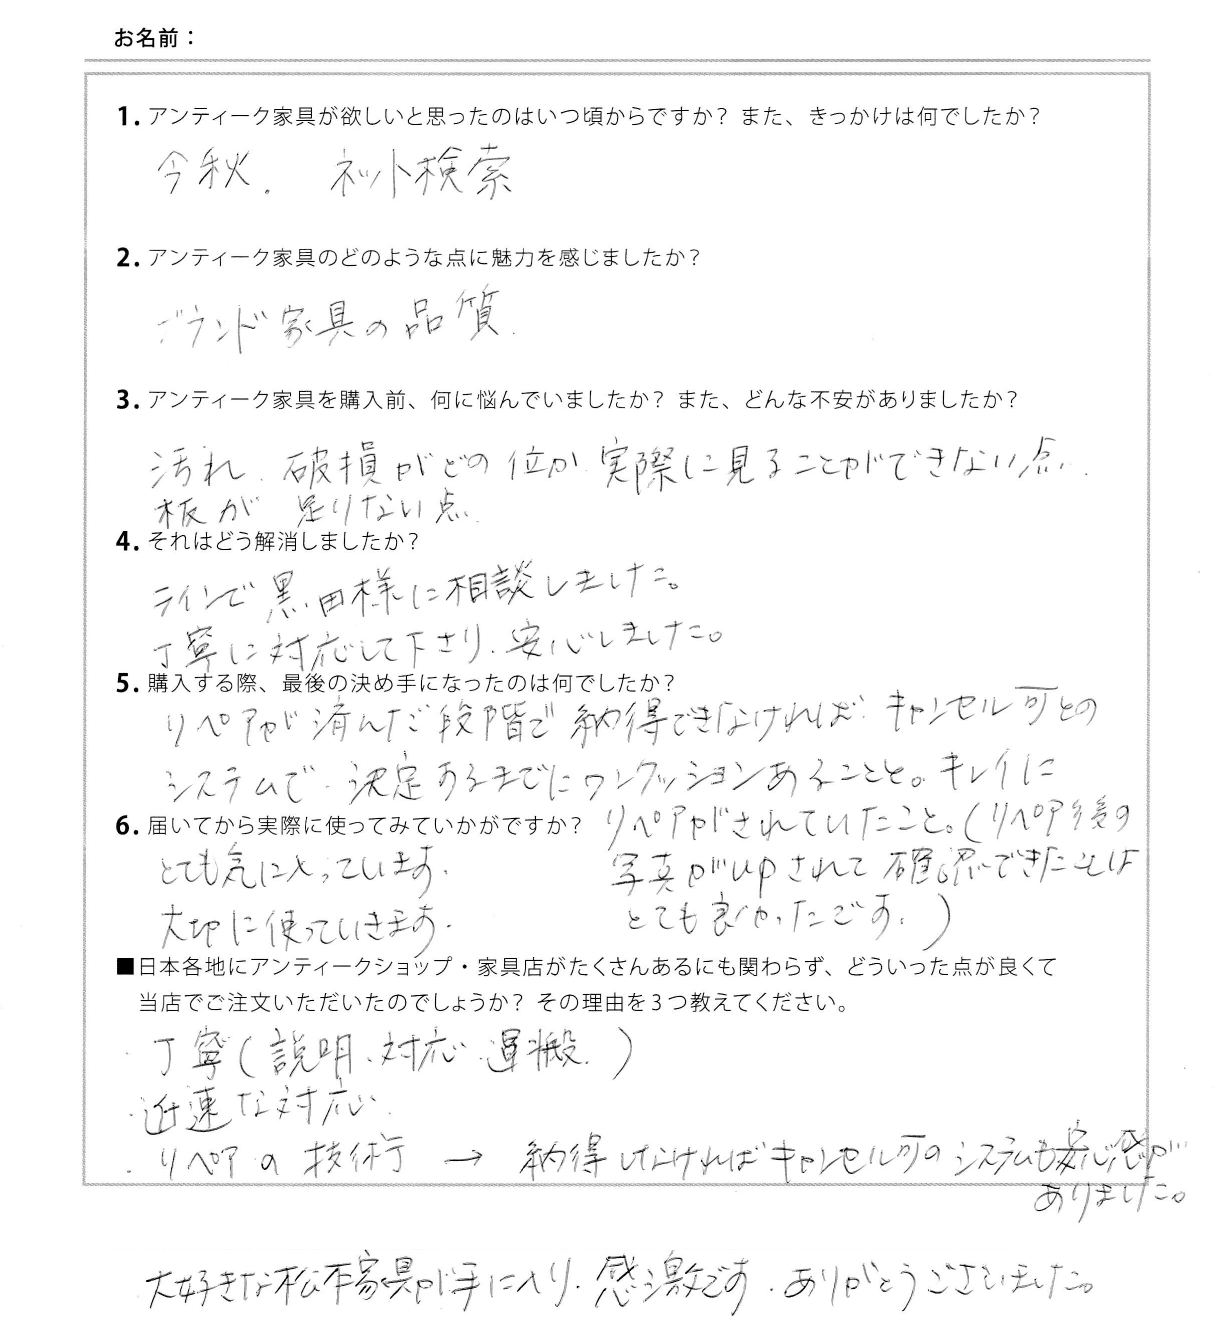 お名前：
1. アンティーク家具が欲しいと思ったのはいつ頃からですか？ また、きっかけは何でしたか？
今秋. ネット検索
2. アンティーク家具のどのような点に魅力を感じましたか？
ブランド家具の品質.
3. アンティーク家具を購入前、何に悩んでいましたか？ また、どんな不安がありましたか？
汚れ、破損がどの位か実際に見ることができない点.
板が足りない点.
4. それはどう解消しましたか？
ラインで黒田様に相談しました。
丁寧に対応して下さり、安心しました。
5. 購入する際、最後の決め手になったのは何でしたか？
リペアが済んだ段階で納得できなければ キャンセル可との
システムで、決定するまでにワンクッションあること。キレイに
リペアがされていたこと。(リペア後の
写真がupされて確認できたことは
とても良かったです.)
6. 届いてから実際に使ってみていかがですか？
とても気に入っています.
大切に使っていきます.
■日本各地にアンティークショップ・家具店がたくさんあるにも関わらず、どういった点が良くて
当店でご注文いただいたのでしょうか？ その理由を３つ教えてください。
・丁寧(説明、対応、運搬.)
・迅速な対応.
・リペアの技術 → 納得しなければキャンセル可のシステムも安心感が
ありました。
大好きな松本家具が手に入り、感激です.ありがとうございました。